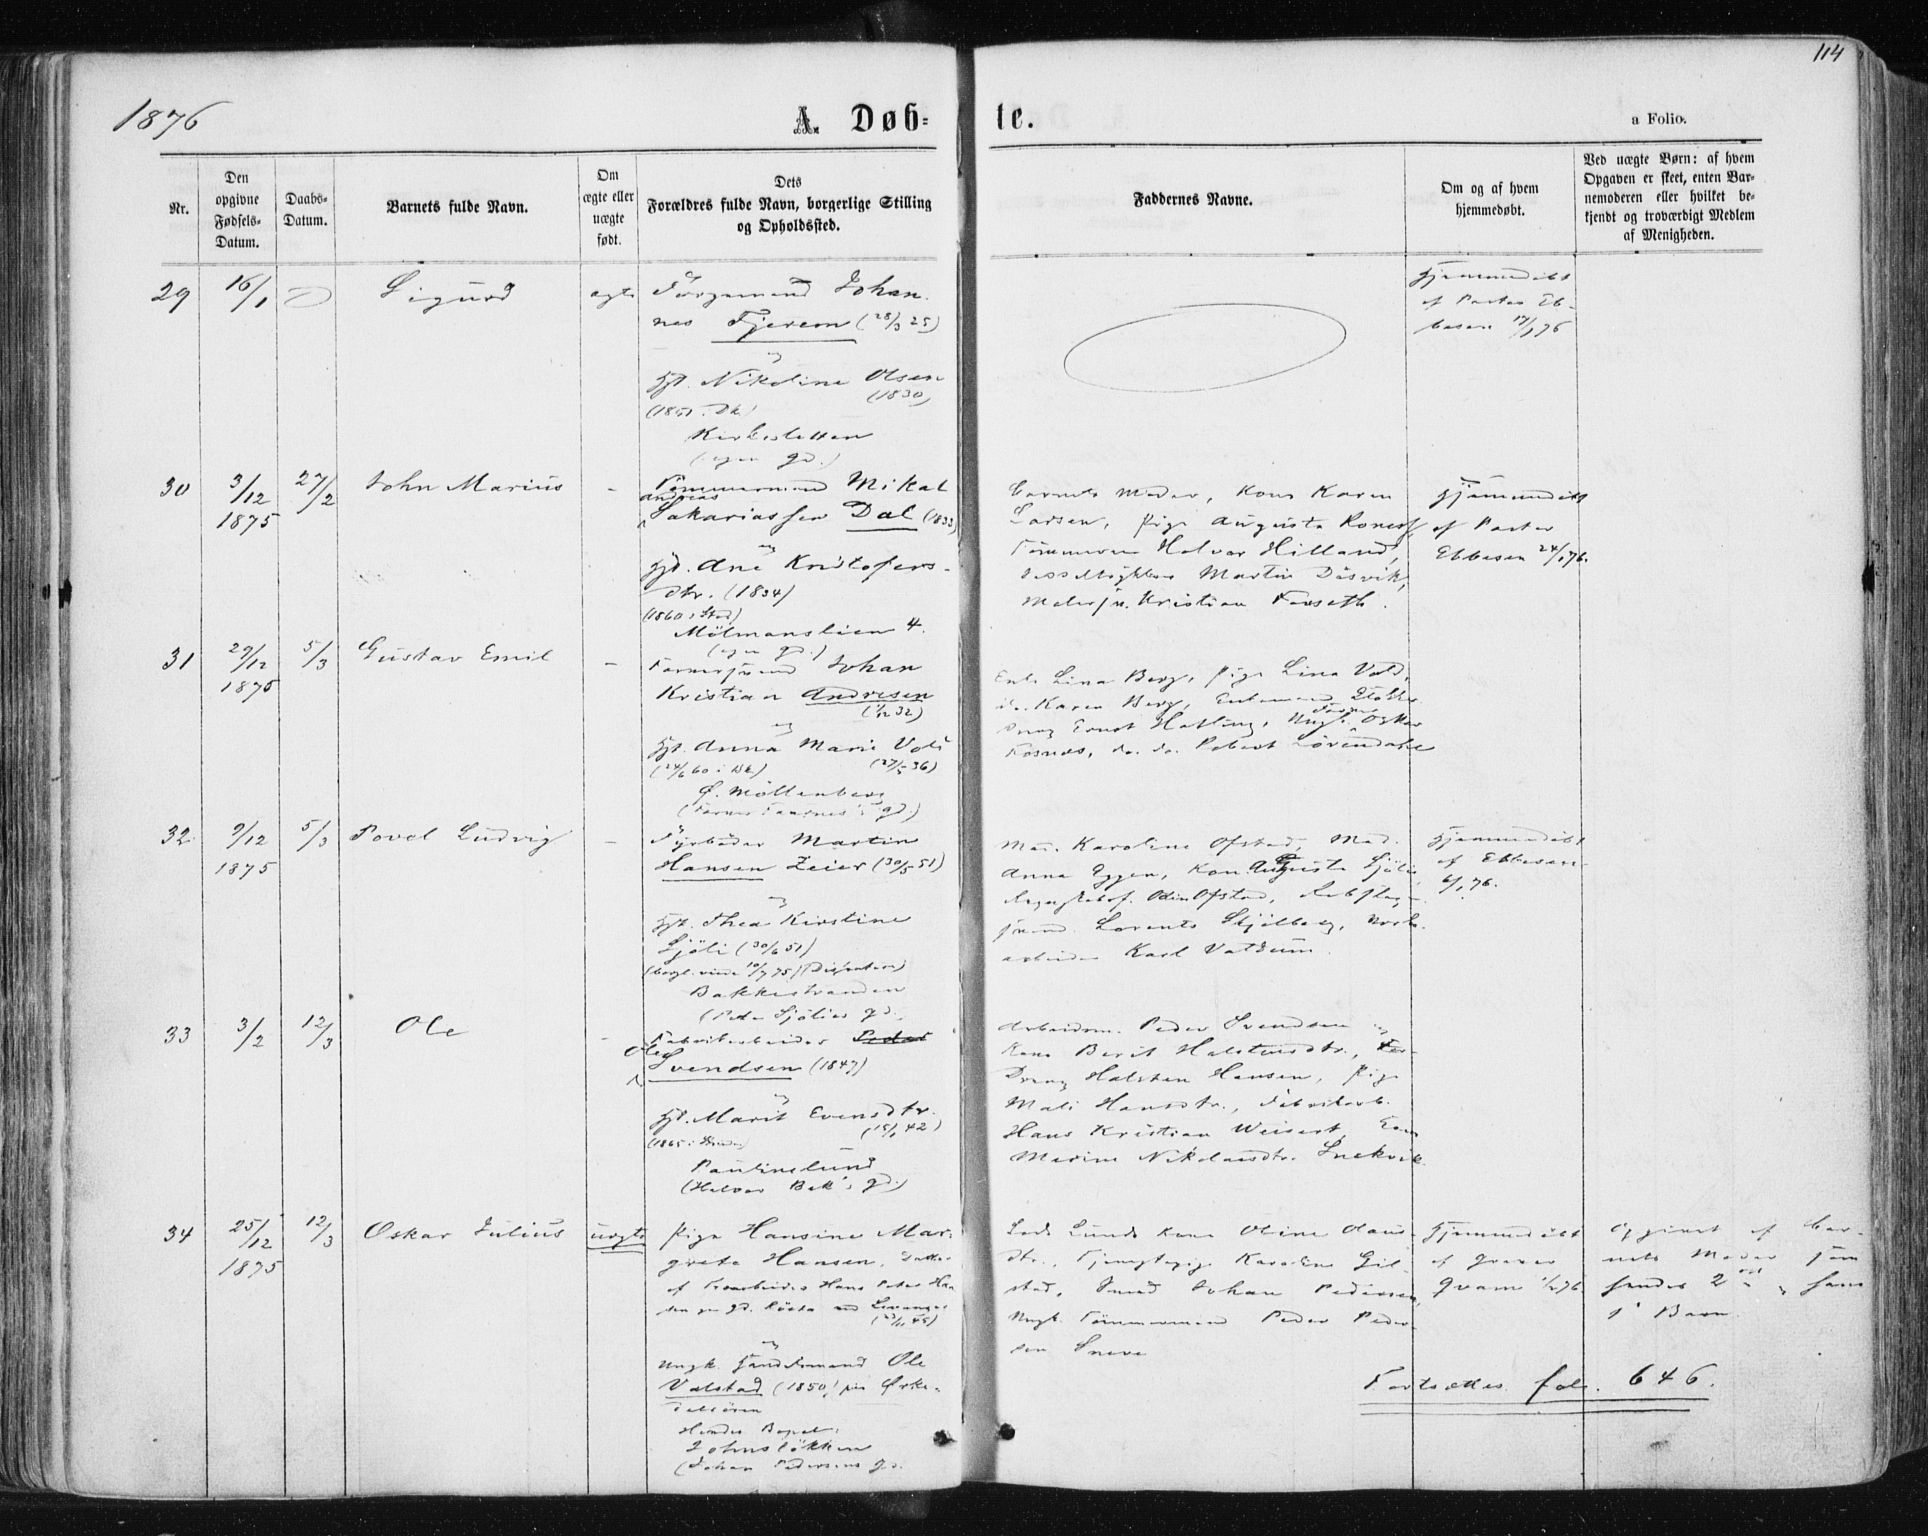 114
1876
A. Døb-
te.
a Folio.
Nr.
Den opgivne Fødsels-Datum.
Daabs-Datum.
Barnets fulde Navn.
Om ægte eller uægte født.
Dets
Forældres fulde Navn, borgerlige Stilling
og Opholdssted.
Faddernes Navne.
Om og af hvem
hjemmedøbt.
Ved uægte Børn: af hvem
Opgaven er skeet, enten Bar-
nemoderen eller hvilket be-
kjendt og troværdigt Medlem
af Menigheden.
29 16/1 Sigurd ægte
Johan-
nes Fjerem (28/3 25)
og
Hst. Nikoline Olsen
(1830)
Kirkesletten
(egen gd.)
Hjemmedøbt
af Pastor Eb-
besen 17/1 76
30 3/12 1875 27/2 John Marius -
Tømmermand Mikal
Andreas
Sakariassen Dal (1833)
og
Hst. Ane Kristofers-
dtr. (1834)
(1860 i Stod)
Mølmanslien 4.
(egen gd.)
Barnets Moder, Kone Karen
Larsen, Pige Augusta
Halvor Hilland,
Martin Døsvik,
Kristian Forseth.
Hjemmedøbt
af Pastor
Ebbesen 24/1 76.
31 29/12 1875 5/3 Gustav Emil -
Johan
Kristian Andresen
(1/12 32)
og
Hst. Anna Marie Vold
(24/6 60 i Dk.) (27/5 36)
Ø. Møllenberg
Enke Lina Berg, Pige Lina Vold,
do. Karen Berg,
Ernst Hatling, Ungk. Oskar
Fosnes, do. do. Robert Løvendahl
32 9/12 1875 5/3 Povel Ludvig -
Fyrbøder Martin
Hansen Zeier (30/5 51)
og
Hst. Thea Kirstine
Sjøli (30/6 51)
(borgl. viede 10/7 75)
Bakkestranden
(Peter Sjølies gd.)
Mad. Karoline Ofstad, Mad.
Anna Eggen, Kone Augusta Sjøli,
Odin Ofstad,
Lorents Skjølberg,
arbeider Karl Vatdum.
Hjemmedøbt
af Ebbesen
6/1 76.
33 3/2 12/3 Ole -
Fabrikarbeider Peder
Ole
Svendsen (1847)
og
Hst. Marit Evensdtr.
(15/1 42)
Paulinelund
(Halvor Bek's gd.)
Arbeidsm. Peder Svendsen og
Kone Berit Halstensdtr.,
Dreng Halsten Hansen, Pige
Mali Hansdtr., Fabrikarb.
Hans Kristian Weisert,
Marine Nikolaisdtr. Snekvik
34 25/12 1875 12/3 Oskar Julius uægte
Pige Hansine Mar-
grete Hansen, Datter
af Hans Peter Han-
sen
(23/11 45)
og
Ungk. Ole
Valstad (1850)
Hendes Bopæl:
Johnsløkken
(Johan Pedersens gd.
Lunds Kone Oline Olaus-
dtr., Tjenestepige Karoline Gil-
stad, Smed Johan Pedersen,
Ungk. Tømmermand Peder Peder-
sen Sneve
Hjemmedøbt
af
Qvam 1/2 76.
Opgivet af Bar-
nets Moder som
hendes 2det, hans
1ste Barn
Fortsættes fol. 646.